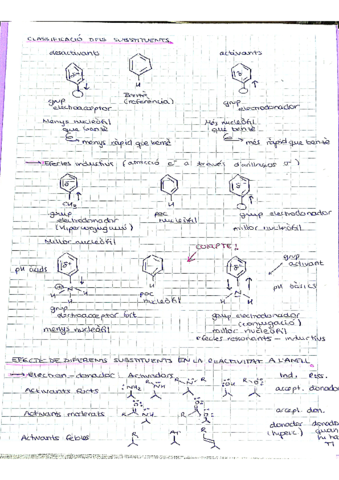 CLASSIFICACIÓ DELS SUBSTITUENTS
desactivants
activants
H
Benzè
(referència)
grup
electroacceptor
grup
electrodonador
Menys nucleòfil
que benzè
Més nucleòfil
que benzè
més ràpid que benzè
Efectes inductius (atracció e⁻ a través d'enllaços σ)
CH₃
H
grup
electrodonador
(Hiperconjugació)
poc
nucleòfil
grup electrodonador
millor nucleòfil
Millor nucleòfil
COMPTE!
grup
activant
pH àcids
pH bàsics
H
N
H
grup
electroacceptor fort
menys nucleòfil
poc
nucleòfil
grup electrodonador
(conjugació)
millor nucleòfil
efectes ressonants - inductius
EFECTE DE DIFERENTS SUBSTITUENTS EN LA REACTIVITAT A L'ANELL
Electron-donador: Activadors
Ind.
Activants forts
NH₂
OH
accept. donador
Activants moderats
accept. don.
Activants febles
R
Ar
donador donador
(hiperc)